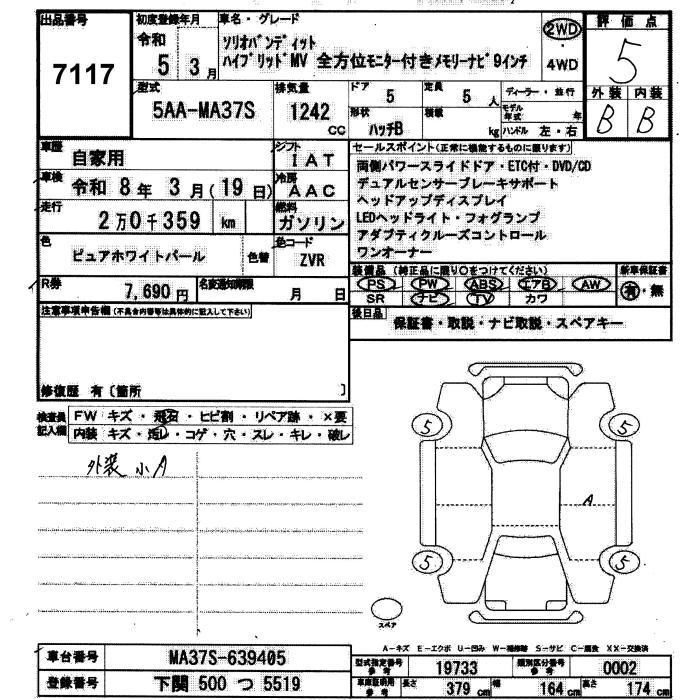 出品番号 7117
初度登録年月 令和 5 3月
車名・グレード
ソリオバンディット
ハイブリッドMV 全方位モニター付きメモリーナビ9インチ
2WD
・
4WD
評価点 5
型式 5AA-MA37S
排気量 1242 CC
ドア 5
定員 5 人
形状 ハッチB
積載 kg
ディーラー・並行
モデル年式 年
ハンドル 左・右
外装 内装
B B
車歴 自家用
シフト IAT
車検 令和 8年 3月(19日)
冷房 AAC
走行 2万0千359 km
燃料 ガソリン
色 ピュアホワイトパール 色替
色コード ZVR
R券 7,690円
名変通知期限 月 日
セールスポイント(正常に機能するものに限ります)
両側パワースライドドア・ETC付・DVD/CD
デュアルセンサーブレーキサポート
ヘッドアップディスプレイ
LEDヘッドライト・フォグランプ
アダプティクルーズコントロール
ワンオーナー
装備品(純正品に限り○をつけてください) 新車保証書
PS PW ABS エアB AW 有・無
SR ナビ TV カワ
後日品 保証書・取説・ナビ取説・スペアキー
注意事項申告欄(不具合内容等は具体的に記入して下さい)
修復歴 有〔箇所 〕
検査員記入欄
FW キズ・飛石・ヒビ割・リペア跡・×要
内装 キズ・汚レ・コゲ・穴・スレ・キレ・破レ
外装 小A
5 5
A
5 5
スペア
A－キズ E－エクボ U－凹み W－補修跡 S－サビ C－腐食 XX－交換済
車台番号 MA37S-639405
登録番号 下関 500 つ 5519
型式指定番号参考 19733
類別区分番号参考 0002
車庫証明用参考 長さ 379 cm 幅 164 cm 高さ 174 cm